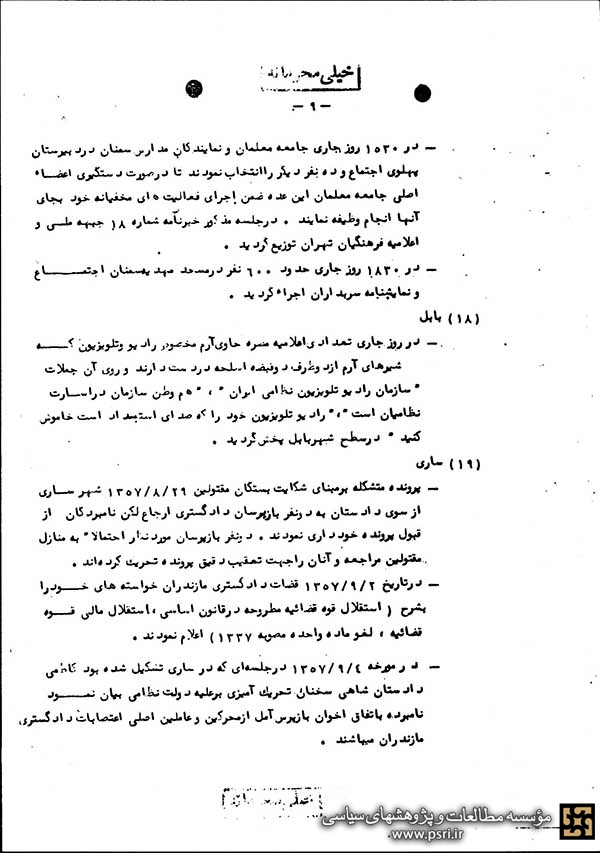 خیلی محرمانه
- ۹ -
- در ۱۵۳۰ روز جاری جامعه معلمان و نمایندگان مدارس سمنان در دبیرستان
پهلوی اجتماع و ده نفر دیگر را انتخاب نمودند تا در صورت دستگیری اعضاء
اصلی جامعه معلمان این عده ضمن اجرای فعالیت های مخفیانه خود بجای
آنها انجام وظیفه نمایند . در جلسه مذکور خبرنامه شماره ۱۸ جبهه ملی و
اعلامیه فرهنگیان تهران توزیع گردید .
- در ۱۸۳۰ روز جاری حدود ۶۰۰ نفر در مسجد مهدیه سمنان اجتماع
و نمایشنامه سربداران اجراء گردید .
(۱۸) بابل
- در روز جاری تعدادی اعلامیه منتسره حاوی آرم مخصوص رادیو و تلویزیون که
شیرهای آرم از دو طرف دو قبضه اسلحه در دست دارند و روی آن جملات
" سازمان رادیو تلویزیون نظامی ایران " ، " هم وطن سازمان در اسارت
نظامیان است " ، " رادیو تلویزیون خود را که صدای استبداد است خاموش
کنید " در سطح شهر بابل پخش گردید .
(۱۹) ساری
- پرونده متشکله بر مبنای شکایت بستگان مقتولین ۱۳۵۷/۸/۲۹ شهر ساری
از سوی دادستان به دو نفر بازپرسان دادگستری ارجاع لکن نامبردگان از
قبول پرونده خودداری نمودند . دو نفر بازپرسان مورد نظر احتمالا" به منازل
مقتولین مراجعه و آنان را جهت تعقیب دقیق پرونده تحریک کرده‌اند .
- در تاریخ ۱۳۵۷/۹/۲ قضات دادگستری مازندران خواسته های خود را
بشرح ( استقلال قوه قضائیه مطروحه در قانون اساسی ، استقلال مالی قوه
قضائیه ، لغو ماده واحده مصوبه ۱۳۳۷ ) اعلام نمودند .
- در مورخه ۱۳۵۷/۹/۴ در جلسه‌ای که در ساری تشکیل شده بود کاظمی
دادستان شاهی سخنان تحریک آمیزی بر علیه دولت نظامی بیان نمود
نامبرده باتفاق اخوان بازپرس آمل از محرکین و عاملین اصلی اعتصابات دادگستری
مازندران میباشند .
خیلی محرمانه
مؤسسه مطالعات و پژوهشهای سیاسی
www.psri.ir